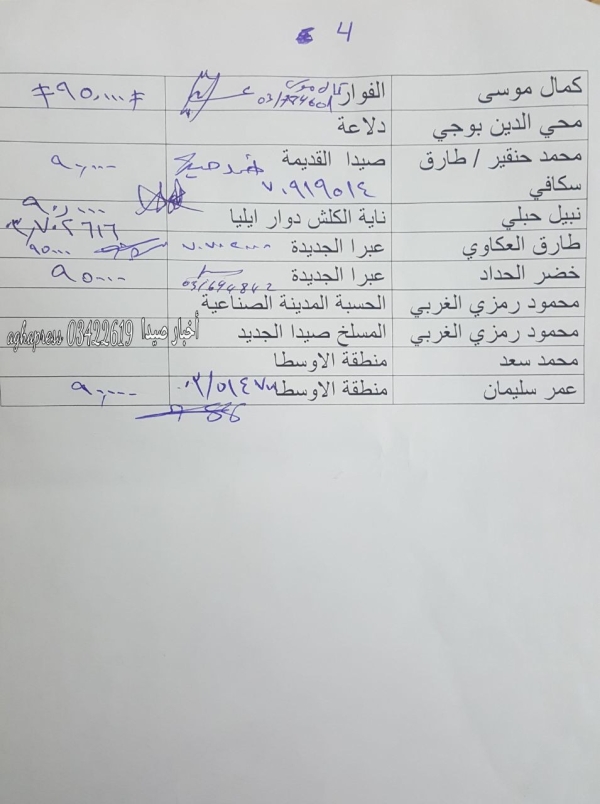 4
كمال موسى الفوار 03/774601 ≠٩٠,٠٠٠≠
محي الدين بوجي دلاعة
محمد حنقير / طارق صيدا القديمة ٩٠,٠٠٠
سكافي ٧٠٩١٩٥١٤
نبيل حبلي ناية الكلش دوار ايليا
طارق العكاوي عبرا الجديدة ٩٠٠٠٠
خضر الحداد عبرا الجديدة 03/694842 ٩٠٠٠٠
محمود رمزي الغربي الحسبة المدينة الصناعية
محمود رمزي الغربي المسلخ صيدا الجديد أخبار صيدا 03422619 aghapress
محمد سعد منطقة الاوسطا
عمر سليمان منطقة الاوسطا ٩٠,٠٠٠